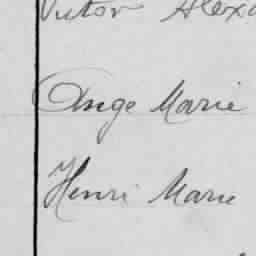 Victor Alexa
Ange Marie
Henri Marie